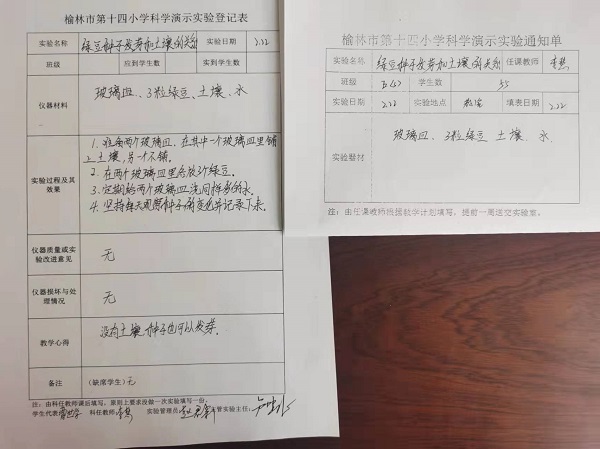 榆林市第十四小学科学演示实验登记表
实验名称 绿豆种子发芽和土壤的关系 实验日期 2.22
班级 应到学生数 实到学生数
仪器材料 玻璃皿、3粒绿豆、土壤、水
实验过程及其效果
1. 准备两个玻璃皿,在其中一个玻璃皿里铺
土壤,另一个不铺。
2. 在两个玻璃皿里各放3个绿豆。
3. 定期给两个玻璃皿浇同样多的水。
4. 坚持每天观察种子的变化并记录下来。
仪器质量或实验改进意见 无
仪器损坏与处理情况 无
教学心得 没有土壤,种子也可以发芽。
备注 (缺席学生)无
注:由科任教师课后填写,原则上要求没做一次实验填写一份。
学生代表 科任教师: 实验管理员: 主管实验主任:
榆林市第十四小学科学演示实验通知单
实验名称 绿豆种子发芽和土壤的关系 任课教师
班级 学生数 55
实验日期 2.22 实验地点 教室 填表日期 2.22
实验器材 玻璃皿、3粒绿豆 土壤、水
注:由任课教师根据教学计划填写,提前一周送交实验室。